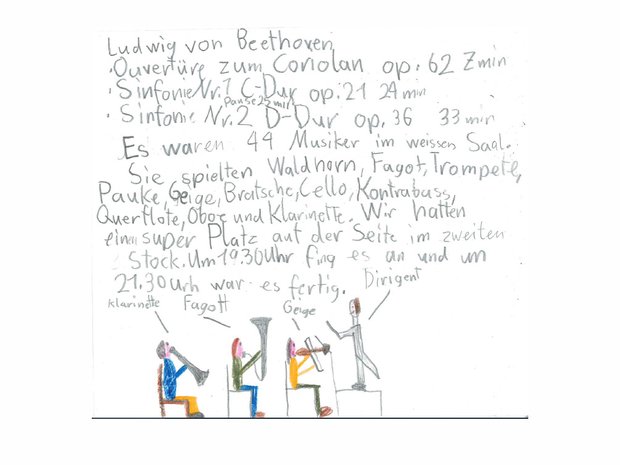 Ludwig von Beethoven
·Ouvertüre zum Coriolan op. 62 7min
·Sinfonie Nr.1 C-Dur op.21 24 min
Pause 25 min
·Sinfonie Nr.2 D-Dur op.36 33 min
Es waren 44 Musiker im weissen Saal.
Sie spielten Waldhorn, Fagot, Trompete,
Pauke, Geige, Bratsche, Cello, Kontrabass,
Querflöte, Oboe und Klarinette. Wir hatten
einen super Platz auf der Seite im zweiten
Stock. Um 19.30 Uhr fing es an und um
21.30 Urh war es fertig.
Dirigent
Klarinette
Fagott
Geige